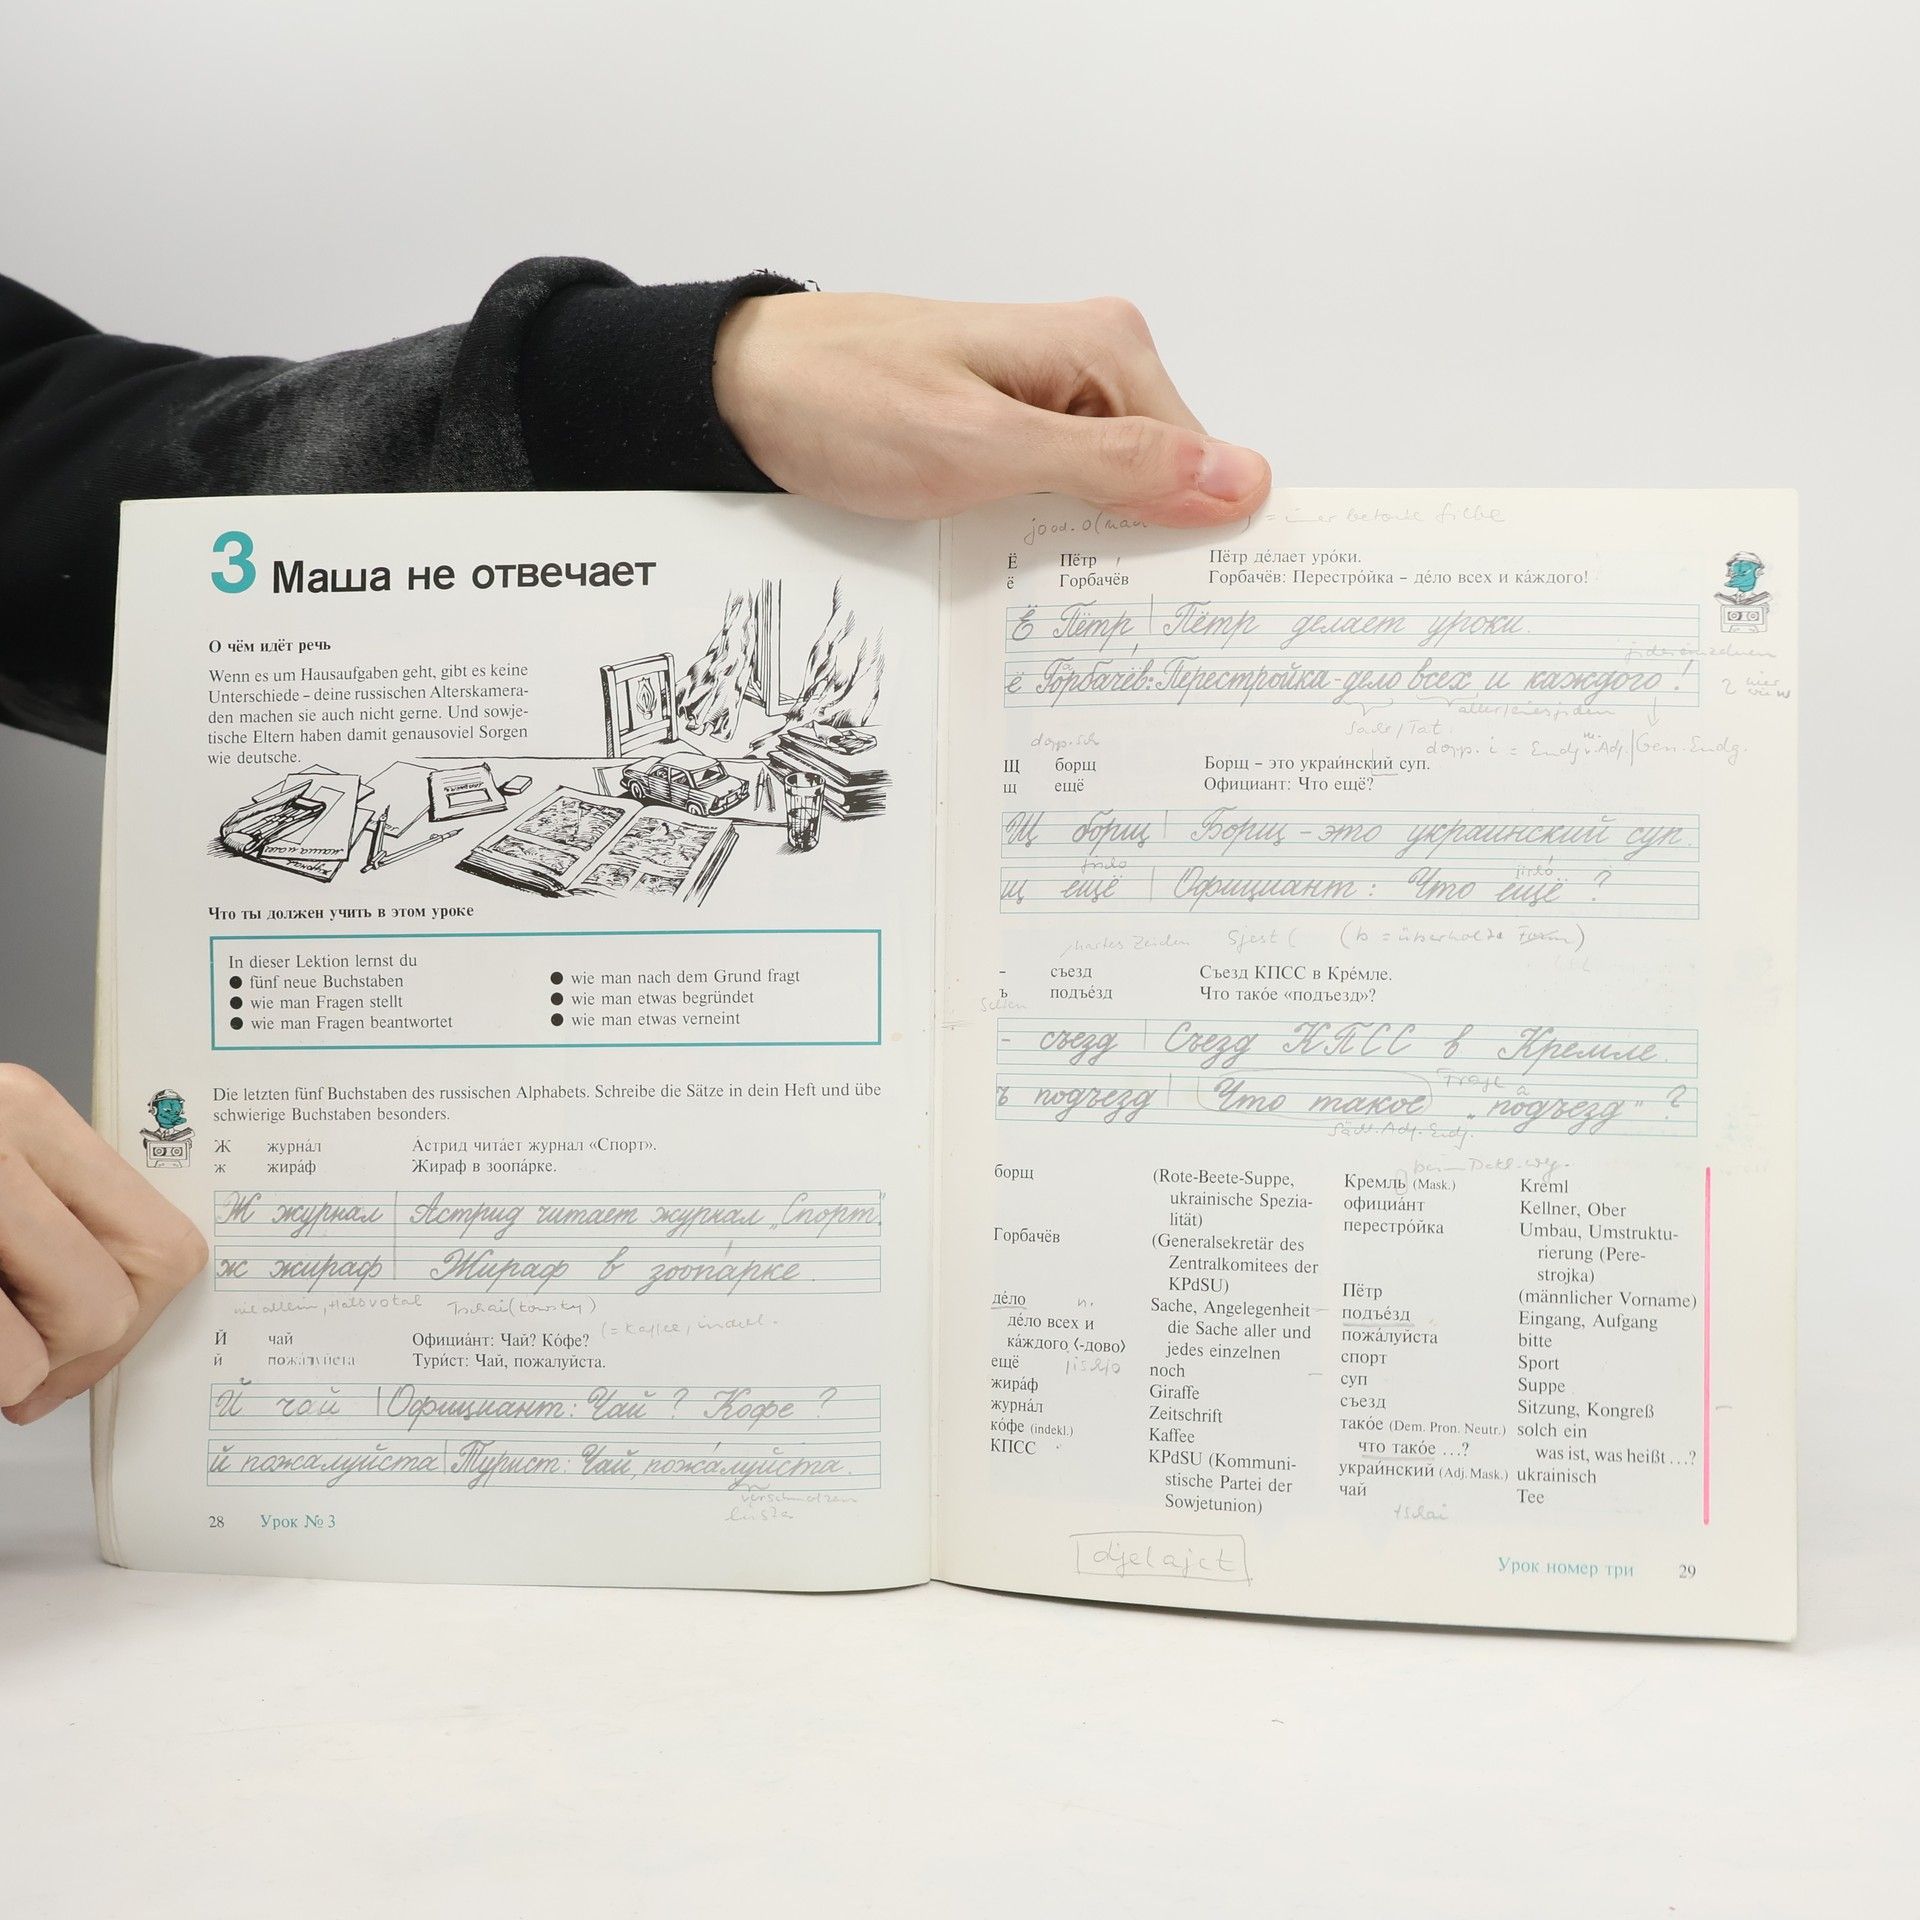 3 Маша не отвечает
О чём идёт речь
Wenn es um Hausaufgaben geht, gibt es keine
Unterschiede – deine russischen Alterskamera-
den machen sie auch nicht gerne. Und sowje-
tische Eltern haben damit genausoviel Sorgen
wie deutsche.
Что ты должен учить в этом уроке
In dieser Lektion lernst du
● fünf neue Buchstaben
● wie man Fragen stellt
● wie man Fragen beantwortet
● wie man nach dem Grund fragt
● wie man etwas begründet
● wie man etwas verneint
Die letzten fünf Buchstaben des russischen Alphabets. Schreibe die Sätze in dein Heft und übe
schwierige Buchstaben besonders.
Ж журна́л А́стрид чита́ет журнал «Спорт».
ж жира́ф Жираф в зоопа́рке.
Ж журнал Астрид читает журнал „Спорт“.
ж жираф Жираф в зоопа́рке.
Tschai(kowsky)
(= Kaffee, indekl.
Й чай Официа́нт: Чай? Ко́фе?
й пожа́луйста Тури́ст: Чай, пожалуйста.
Й чай Официант: Чай? Кофе?
й пожалуйста Турист: Чай, пожа́луйста.
verschmelzen
28 Урок № 3
Ё Пётр Пётр де́лает уро́ки.
ё Горбачёв Горбачёв: Перестро́йка – де́ло всех и ка́ждого!
Ё Пётр Пётр делает уроки.
ё Горбачёв: Перестройка – дело всех и каждого!
Sache/Tat
dopp. sch
Щ борщ Борщ – это украи́нский суп.
щ ещё Официант: Что ещё?
Щ борщ Борщ – это украинский суп.
щ ещё Официант: Что ещё?
hartes Zeichen Sjest (ь = überholte Form)
– съезд Съезд КПСС в Кре́мле.
ъ подъе́зд Что тако́е «подъезд»?
– съезд Съезд КПСС в Кремле.
ъ подъезд Что такое „подъезд“?
борщ (Rote-Beete-Suppe,
ukrainische Spezia-
lität)
Горбачёв (Generalsekretär des
Zentralkomitees der
KPdSU)
де́ло n. Sache, Angelegenheit
де́ло всех и die Sache aller und
ка́ждого ⟨-дово⟩ jedes einzelnen
ещё noch
жира́ф Giraffe
журна́л Zeitschrift
ко́фе (indekl.) Kaffee
КПСС KPdSU (Kommuni-
stische Partei der
Sowjetunion)
Кремль (Mask.) Kreml
официа́нт Kellner, Ober
перестро́йка Umbau, Umstruktu-
rierung (Pere-
strojka)
Пётр (männlicher Vorname)
подъе́зд Eingang, Aufgang
пожа́луйста bitte
спорт Sport
суп Suppe
съезд Sitzung, Kongreß
тако́е (Dem. Pron. Neutr.) solch ein
что тако́е …? was ist, was heißt …?
украи́нский (Adj. Mask.) ukrainisch
чай Tee
tschai
djelajet
Урок номер три 29